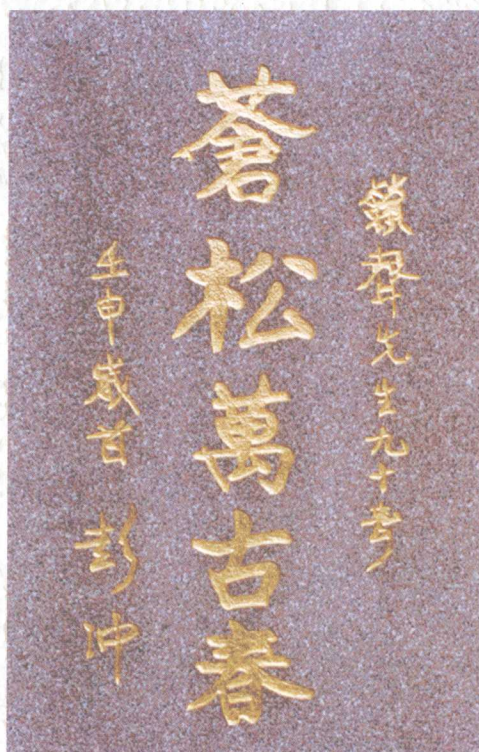 籟聲先生九十壽
蒼松萬古春
壬申歲首 彭冲